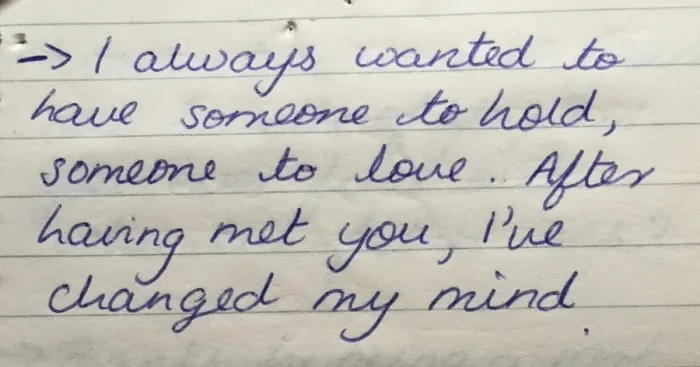 -> I always wanted to
have someone to hold,
someone to love. After
having met you, I've
changed my mind.